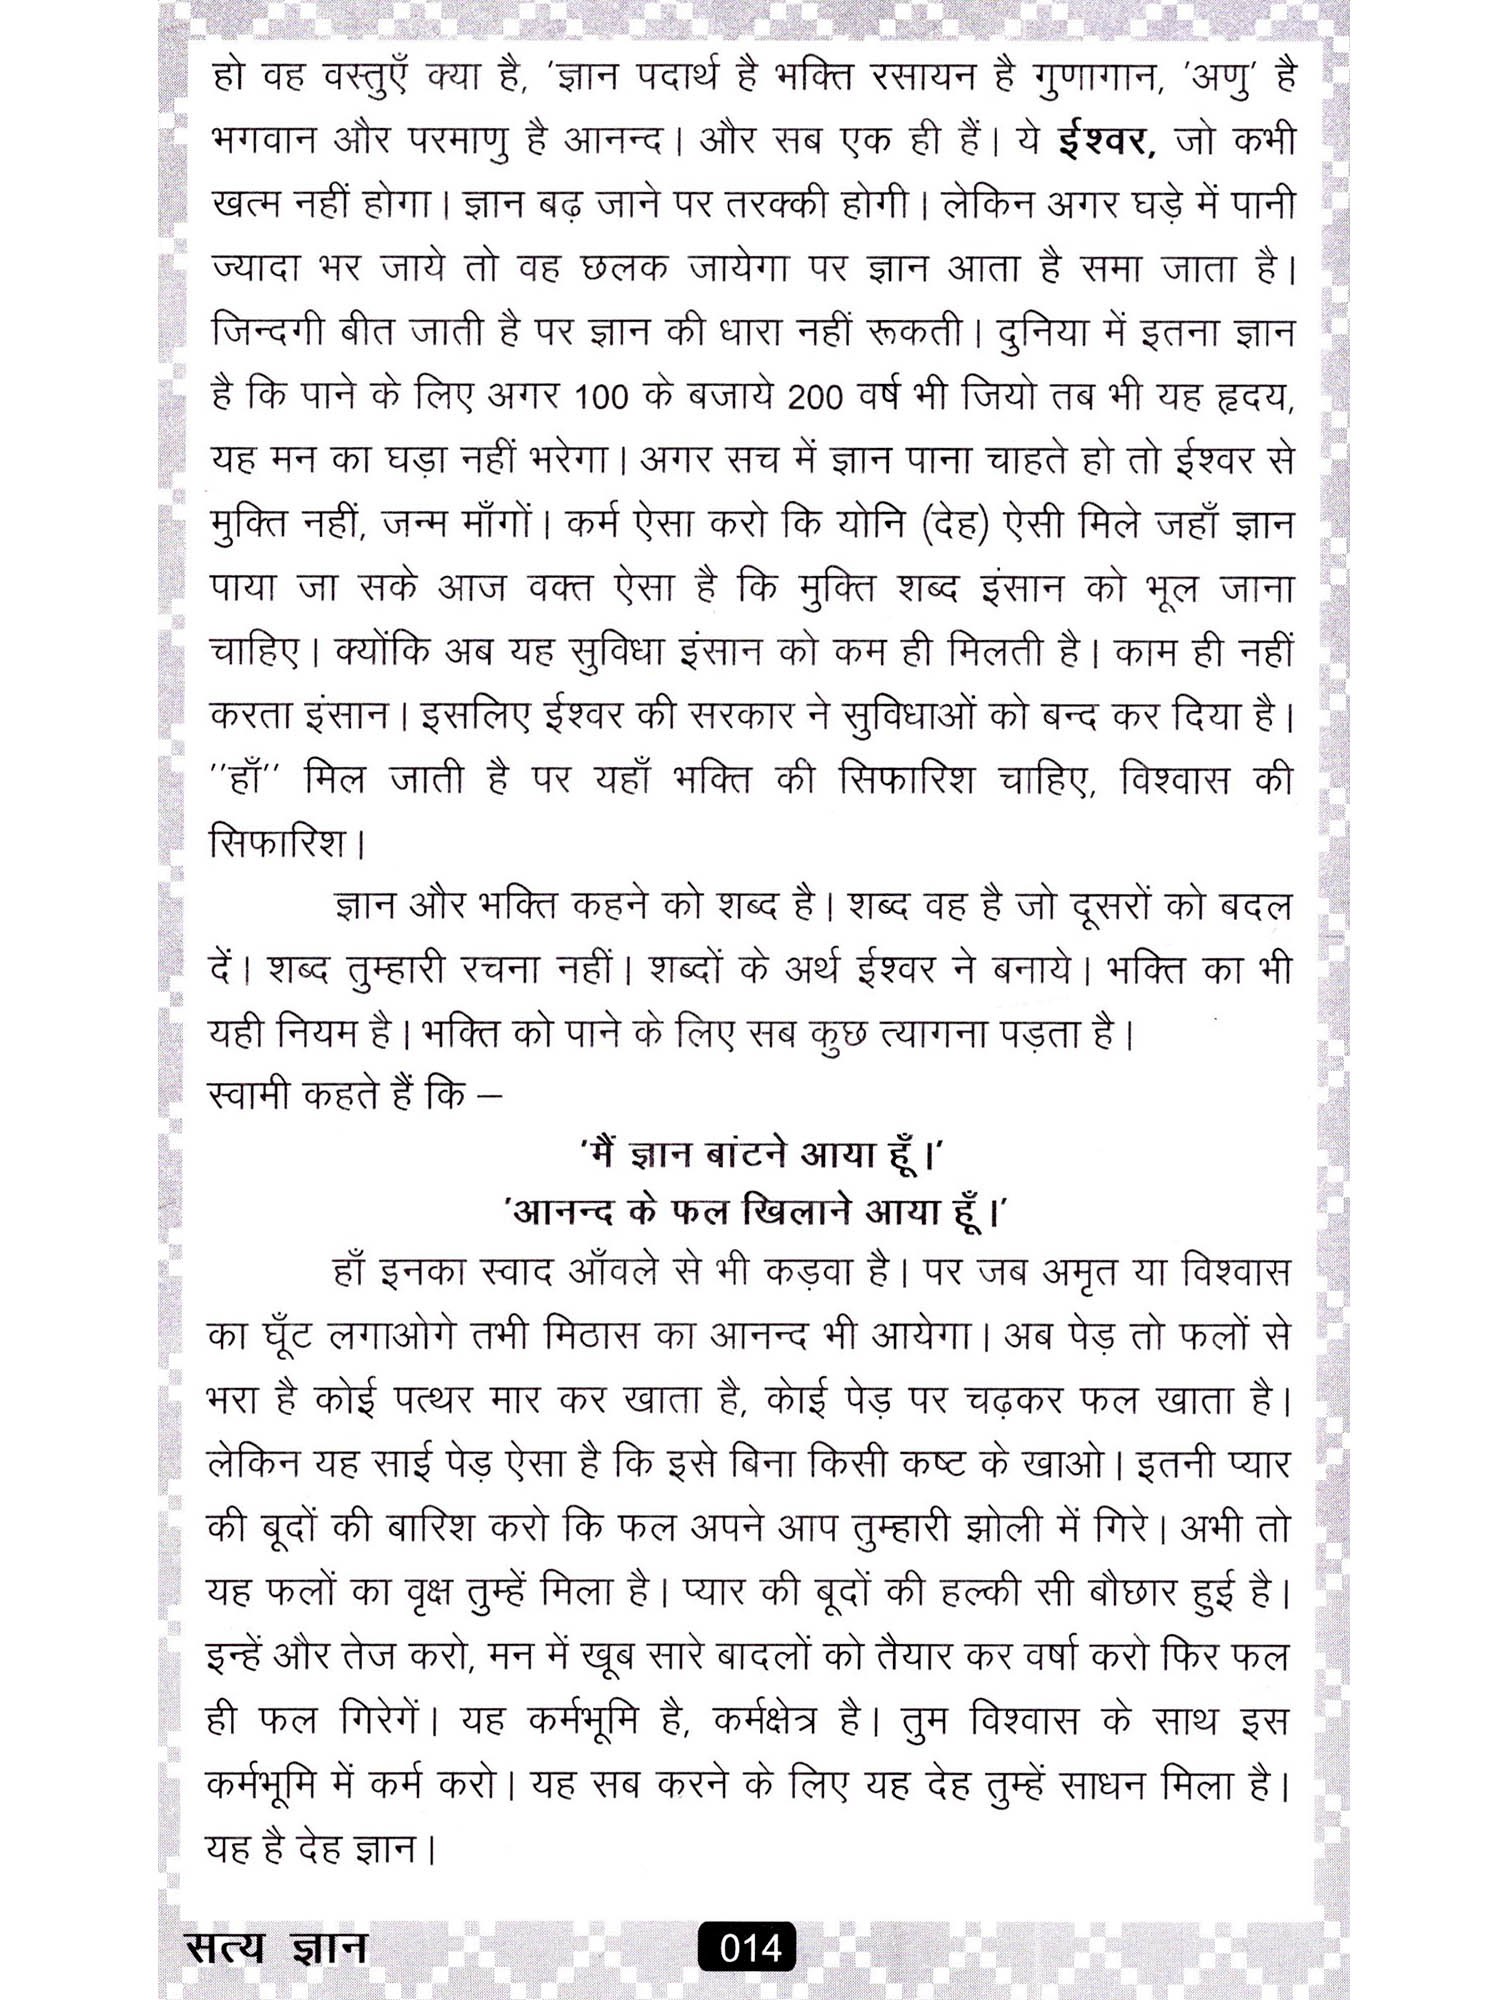 हो वह वस्तुएँ क्या है, 'ज्ञान पदार्थ है भक्ति रसायन है गुणागान, 'अणु' है
भगवान और परमाणु है आनन्द। और सब एक ही हैं। ये ईश्वर, जो कभी
खत्म नहीं होगा। ज्ञान बढ़ जाने पर तरक्की होगी। लेकिन अगर घड़े में पानी
ज्यादा भर जाये तो वह छलक जायेगा पर ज्ञान आता है समा जाता है।
जिन्दगी बीत जाती है पर ज्ञान की धारा नहीं रूकती। दुनिया में इतना ज्ञान
है कि पाने के लिए अगर 100 के बजाये 200 वर्ष भी जियो तब भी यह हृदय,
यह मन का घड़ा नहीं भरेगा। अगर सच में ज्ञान पाना चाहते हो तो ईश्वर से
मुक्ति नहीं, जन्म माँगों। कर्म ऐसा करो कि योनि (देह) ऐसी मिले जहाँ ज्ञान
पाया जा सके आज वक्त ऐसा है कि मुक्ति शब्द इंसान को भूल जाना
चाहिए। क्योंकि अब यह सुविधा इंसान को कम ही मिलती है। काम ही नहीं
करता इंसान। इसलिए ईश्वर की सरकार ने सुविधाओं को बन्द कर दिया है।
''हाँ'' मिल जाती है पर यहाँ भक्ति की सिफारिश चाहिए, विश्वास की
सिफारिश।
ज्ञान और भक्ति कहने को शब्द है। शब्द वह है जो दूसरों को बदल
दें। शब्द तुम्हारी रचना नहीं। शब्दों के अर्थ ईश्वर ने बनाये। भक्ति का भी
यही नियम है। भक्ति को पाने के लिए सब कुछ त्यागना पड़ता है।
स्वामी कहते हैं कि –
'मैं ज्ञान बांटने आया हूँ।'
'आनन्द के फल खिलाने आया हूँ।'
हाँ इनका स्वाद आँवले से भी कड़वा है। पर जब अमृत या विश्वास
का घूँट लगाओगे तभी मिठास का आनन्द भी आयेगा। अब पेड़ तो फलों से
भरा है कोई पत्थर मार कर खाता है, केाई पेड़ पर चढ़कर फल खाता है।
लेकिन यह साई पेड़ ऐसा है कि इसे बिना किसी कष्ट के खाओ। इतनी प्यार
की बूदों की बारिश करो कि फल अपने आप तुम्हारी झोली में गिरे। अभी तो
यह फलों का वृक्ष तुम्हें मिला है। प्यार की बूदों की हल्की सी बौछार हुई है।
इन्हें और तेज करो, मन में खूब सारे बादलों को तैयार कर वर्षा करो फिर फल
ही फल गिरेगें। यह कर्मभूमि है, कर्मक्षेत्र है। तुम विश्वास के साथ इस
कर्मभूमि में कर्म करो। यह सब करने के लिए यह देह तुम्हें साधन मिला है।
यह है देह ज्ञान।
सत्य ज्ञान
014